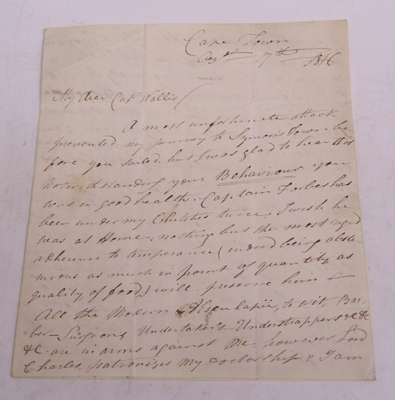 Cape Town
Augst 17th 1816
My dear Capt Wallis
A most unfortunate attack
prevented my journey to Symons Town be
fore you sailed, but I was glad to hear that
notwithstanding your Behaviour you
were in good health. Captain Forbes has
been under my Clutches twice, I wish he
was at Home, nothing but the most rigid
adherence to temperance (indeed being abste
mious as much in point of quantity as
quality of food,) will preserve him —
All the Modern Æsculapii, to wit, Bar
ber Surgeons Undertakers Understrappers &c &c
&c are in arms against me, however Lord
Charles, patronises my Doctorship & I am